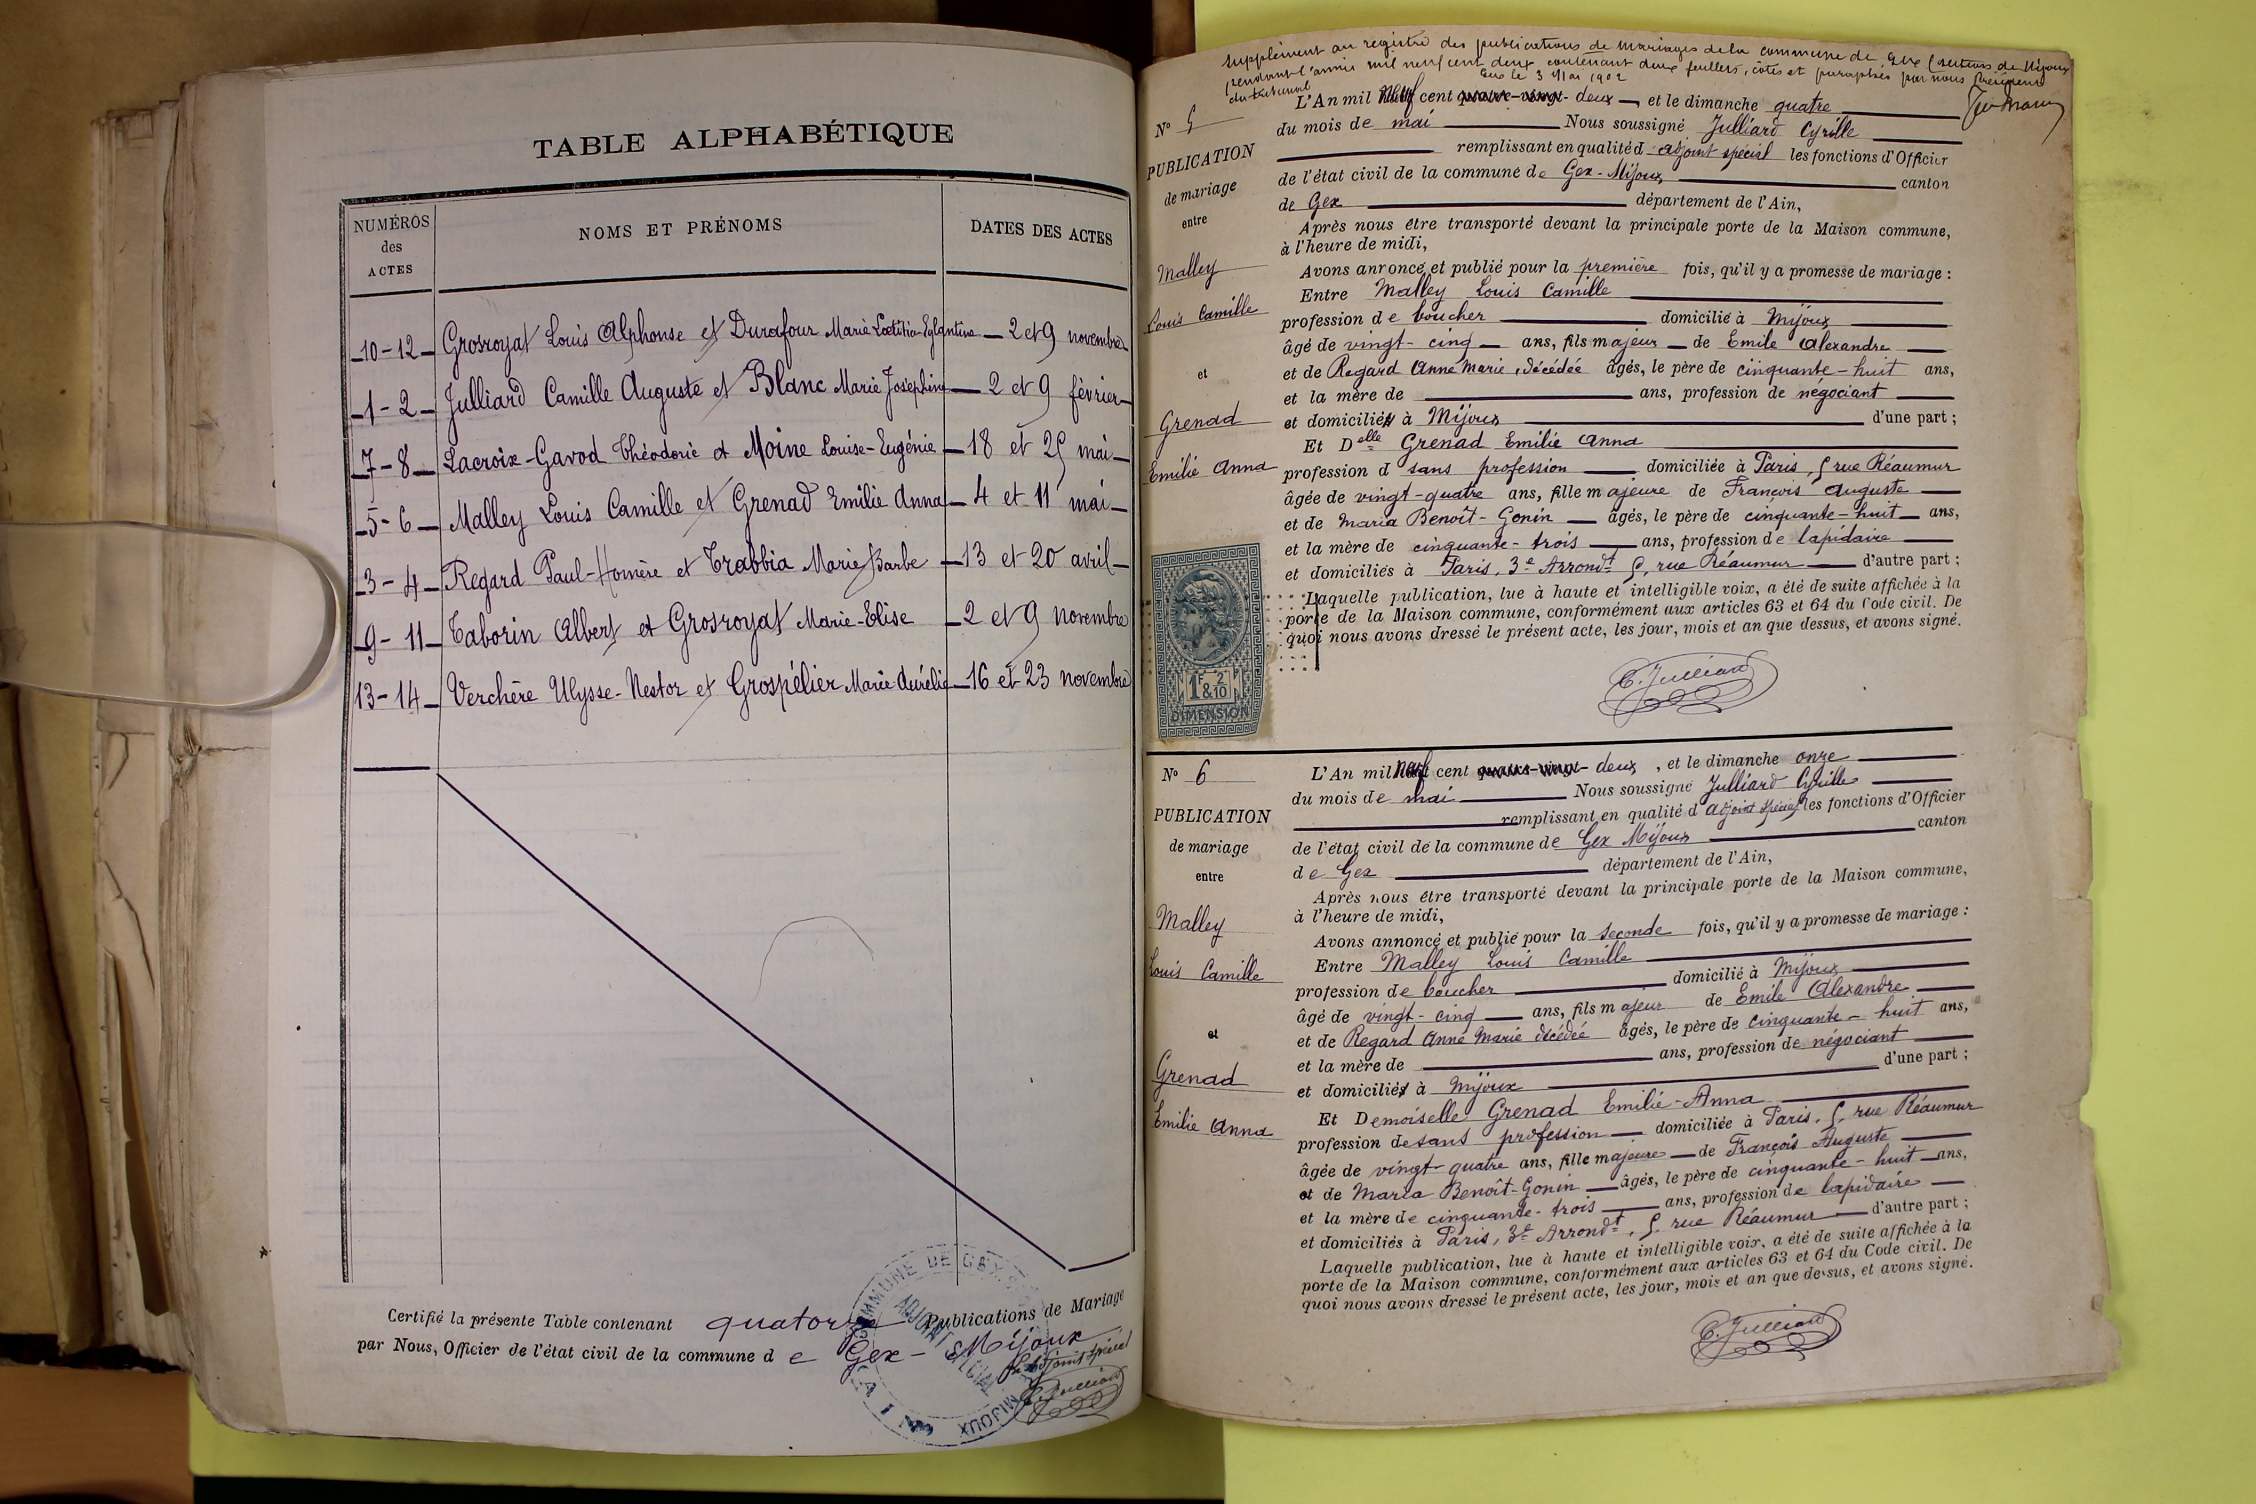 TABLE ALPHABÉTIQUE
NUMÉROS des ACTES
NOMS ET PRÉNOMS
DATES DES ACTES
10-12 Grosroyat Louis Alphonse et Durafour Marie Lœtitia-Eglantine 2 et 9 novembre
1-2 Julliard Camille Auguste et Blanc Marie Joséphine 2 et 9 février
7-8 Lacroix-Gavod Théodorie et Moine Louise-Eugénie 18 et 25 mai
5-6 Malley Louis Camille et Grenad Emilie Anna 4 et 11 mai
3-4 Regard Paul-Homère et Trabbia Marie Barbe 13 et 20 avril
9-11 Taborin Albert et Grosroyat Marie-Elise 2 et 9 novembre
13-14 Verchère Ulysse-Nestor et Grospélier Marie Aurélie 16 et 23 novembre
Certifié la présente Table contenant quatorze Publications de Mariage
par Nous, Officier de l'état civil de la commune de Gex-Mijoux
L'adjoint spécial
C. Julliard
COMMUNE DE GEX
ADJOINT SPÉCIAL
MIJOUX
AIN
Supplément au registre des publications de mariages de la commune de Gex (section de Mijoux
pendant l'année mil neuf cent deux contenant deux feuillets, côtés et paraphés par nous Président
du tribunal Gex le 3 Mai 1902
N° 5
PUBLICATION
de mariage
entre
Malley
Louis Camille
et
Grenad
Emilie Anna
L'An mil neuf cent quatre-vingt- deux et le dimanche quatre
du mois de mai Nous soussigné Julliard Cyrille
remplissant en qualité d adjoint spécial les fonctions d'Officier
de l'état civil de la commune de Gex-Mijoux canton
de Gex département de l'Ain,
Après nous être transporté devant la principale porte de la Maison commune,
à l'heure de midi,
Avons annoncé et publié pour la première fois, qu'il y a promesse de mariage :
Entre Malley Louis Camille
profession de boucher domicilié à Mijoux
âgé de vingt-cinq ans, fils majeur de Emile Alexandre
et de Regard Anne Marie, décédée âgés, le père de cinquante-huit ans,
et la mère de ans, profession de négociant
et domiciliés à Mijoux d'une part ;
Et Delle Grenad Emilie Anna
profession d sans profession domiciliée à Paris, 5 rue Réaumur
âgée de vingt-quatre ans, fille majeure de François Auguste
et de Maria Benoît-Gonin âgés, le père de cinquante-huit ans,
et la mère de cinquante-trois ans, profession de lapidaire
et domiciliés à Paris, 3e Arrondt 5, rue Réaumur d'autre part ;
Laquelle publication, lue à haute et intelligible voix, a été de suite affichée à la
porte de la Maison commune, conformément aux articles 63 et 64 du Code civil. De
quoi nous avons dressé le présent acte, les jour, mois et an que dessus, et avons signé.
1F & 2/10
DIMENSION
C. Julliard
N° 6
PUBLICATION
de mariage
entre
Malley
Louis Camille
et
Grenad
Emilie Anna
L'An mil neuf cent quatre-vingt- deux, et le dimanche onze
du mois de mai Nous soussigné Julliard Cyrille
remplissant en qualité d adjoint spécial les fonctions d'Officier
de l'état civil de la commune de Gex Mijoux canton
de Gex département de l'Ain,
Après nous être transporté devant la principale porte de la Maison commune,
à l'heure de midi,
Avons annoncé et publié pour la seconde fois, qu'il y a promesse de mariage :
Entre Malley Louis Camille
profession de boucher domicilié à Mijoux
âgé de vingt-cinq ans, fils majeur de Emile Alexandre
et de Regard Anne Marie décédée âgés, le père de cinquante-huit ans,
et la mère de ans, profession de négociant
et domiciliés à Mijoux d'une part ;
Et Demoiselle Grenad Emilie-Anna
profession de sans profession domiciliée à Paris, 5, rue Réaumur
âgée de vingt-quatre ans, fille majeure de François Auguste
et de Maria Benoît-Gonin âgés, le père de cinquante-huit ans,
et la mère de cinquante-trois ans, profession de lapidaire
et domiciliés à Paris, 3e Arrondt, 5, rue Réaumur d'autre part ;
Laquelle publication, lue à haute et intelligible voix, a été de suite affichée à la
porte de la Maison commune, conformément aux articles 63 et 64 du Code civil. De
quoi nous avons dressé le présent acte, les jour, mois et an que dessus, et avons signé.
C. Julliard